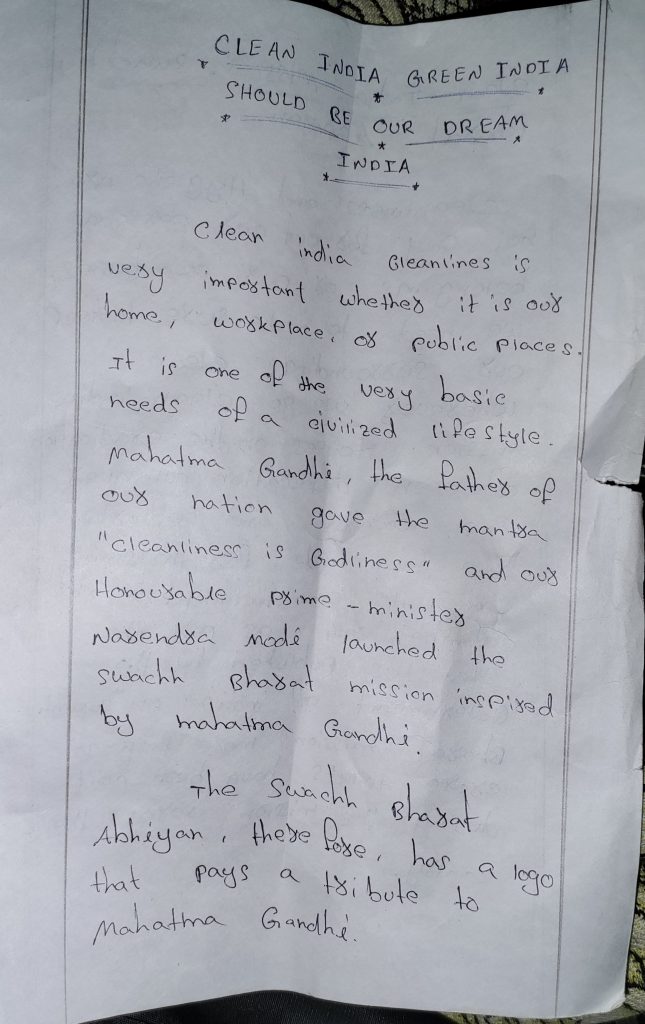 CLEAN INDIA GREEN INDIA
SHOULD BE OUR DREAM
INDIA
Clean india Cleanlines is
very important whether it is our
home, workplace, or public places.
It is one of the very basic
needs of a civilized lifestyle.
Mahatma Gandhi, the father of
our nation gave the mantra
"cleanliness is Godliness" and our
Honourable prime - minister
Narendra modi launched the
swachh Bharat mission inspired
by mahatma Gandhi.
The Swachh Bharat
Abhiyan, there fore, has a logo
that pays a tribute to
Mahatma Gandhi.